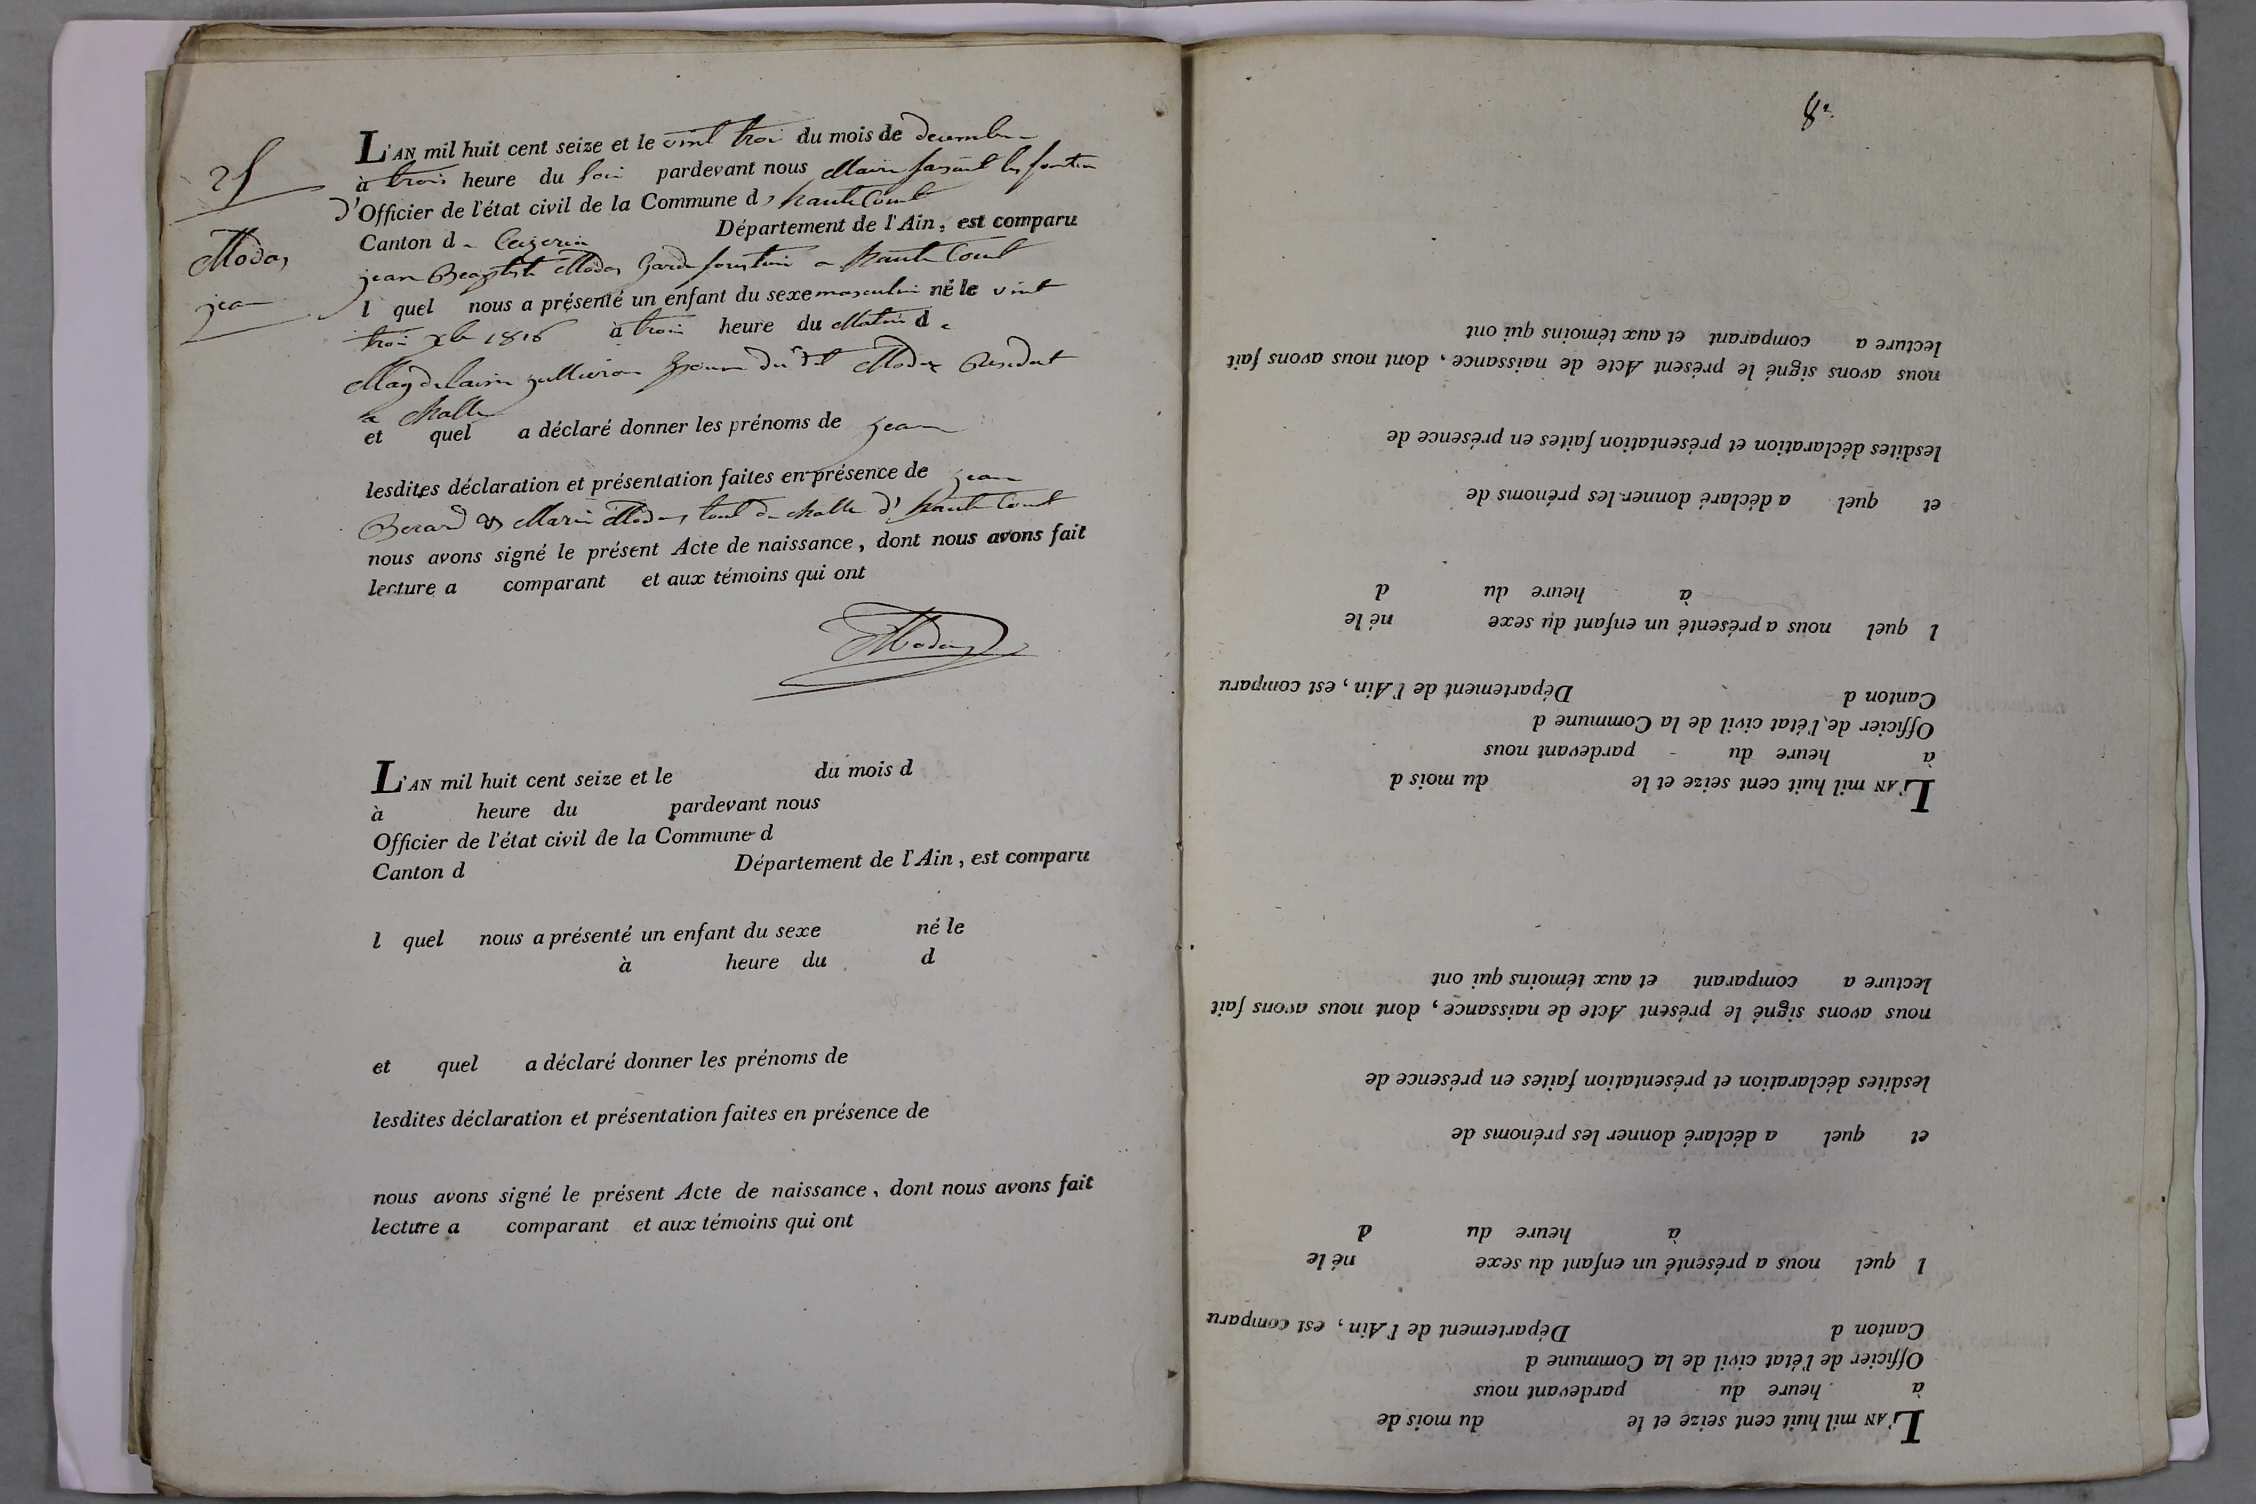 25
Modas
jean
L'AN mil huit cent seize et le vint troi du mois de decembre
à trois heure du soir pardevant nous Maire faisant les fonction
d'Officier de l'état civil de la Commune d, hautecourt
Canton d Ceizeria Département de l'Ain, est comparu
jean Baptiste Modas garde forestier a hautecourt
l quel nous a présenté un enfant du sexe masculin né le vint
troi xbre 1816 à trois heure du Matin d
Magdelaine epouse dudit Modas Resident
a challe
et quel a déclaré donner les prénoms de jean
lesdites déclaration et présentation faites en présence de jean
Berard & Marie Modas tout de challe d'hautecourt
nous avons signé le présent Acte de naissance, dont nous avons fait
lecture a comparant et aux témoins qui ont
Modas
L'AN mil huit cent seize et le du mois d
à heure du pardevant nous
Officier de l'état civil de la Commune d
Canton d Département de l'Ain, est comparu
l quel nous a présenté un enfant du sexe né le
à heure du d
et quel a déclaré donner les prénoms de
lesdites déclaration et présentation faites en présence de
nous avons signé le présent Acte de naissance, dont nous avons fait
lecture a comparant et aux témoins qui ont
L'AN mil huit cent seize et le du mois de
à heure du pardevant nous
Officier de l'état civil de la Commune d
Canton d Département de l'Ain, est comparu
l quel nous a présenté un enfant du sexe né le
à heure du d
et quel a déclaré donner les prénoms de
lesdites déclaration et présentation faites en présence de
nous avons signé le présent Acte de naissance, dont nous avons fait
lecture a comparant et aux témoins qui ont
L'AN mil huit cent seize et le du mois d
à heure du pardevant nous
Officier de l'état civil de la Commune d
Canton d Département de l'Ain, est comparu
l quel nous a présenté un enfant du sexe né le
à heure du d
et quel a déclaré donner les prénoms de
lesdites déclaration et présentation faites en présence de
nous avons signé le présent Acte de naissance, dont nous avons fait
lecture a comparant et aux témoins qui ont